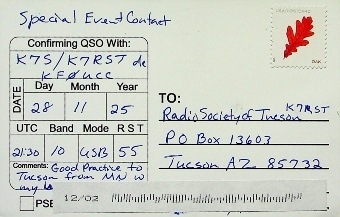 Special Event Contact
Confirming QSO With:
K7S/K7RST de
KF0UCC
DATE
Day Month Year
28 11 25
UTC Band Mode RST
2130 10 USB 55
Comments: Good Practice to
Tucson from MN w
my
PSE
12/02
OAK
TO:
Radio Society of Tucson K7RST
PO Box 13603
Tucson AZ 85732